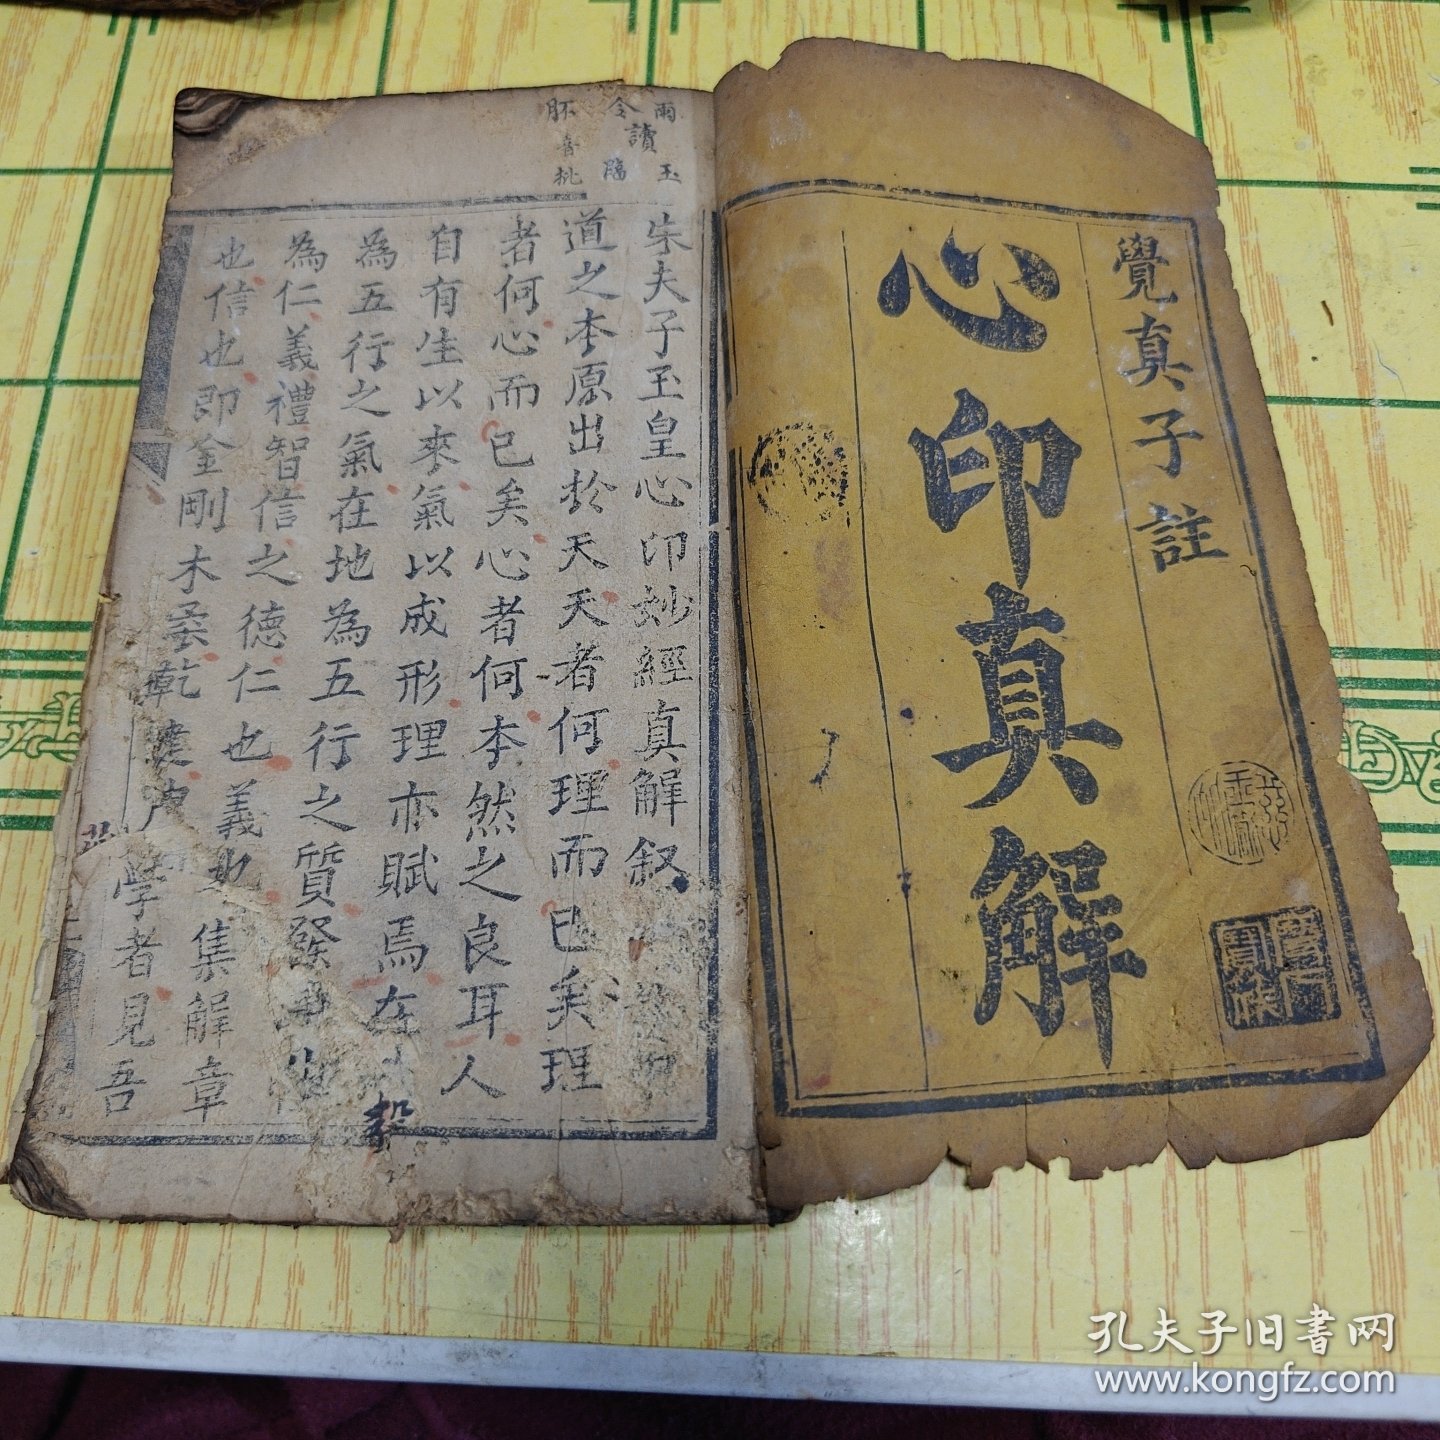 覺真子註
心印真解
雨 令 肧
讀 音
玉 臨 桃
朱夫子玉皇心印妙經真解叙
道之本原出於天天者何理而已矣理
者何心而已矣心者何本然之良耳人
自有生以來氣以成形理亦賦焉在
為五行之氣在地為五行之質發
為仁義禮智信之德仁也義也集解章
也信也即金剛木柔乾 學者見吾
孔夫子旧书网
www.kongfz.com